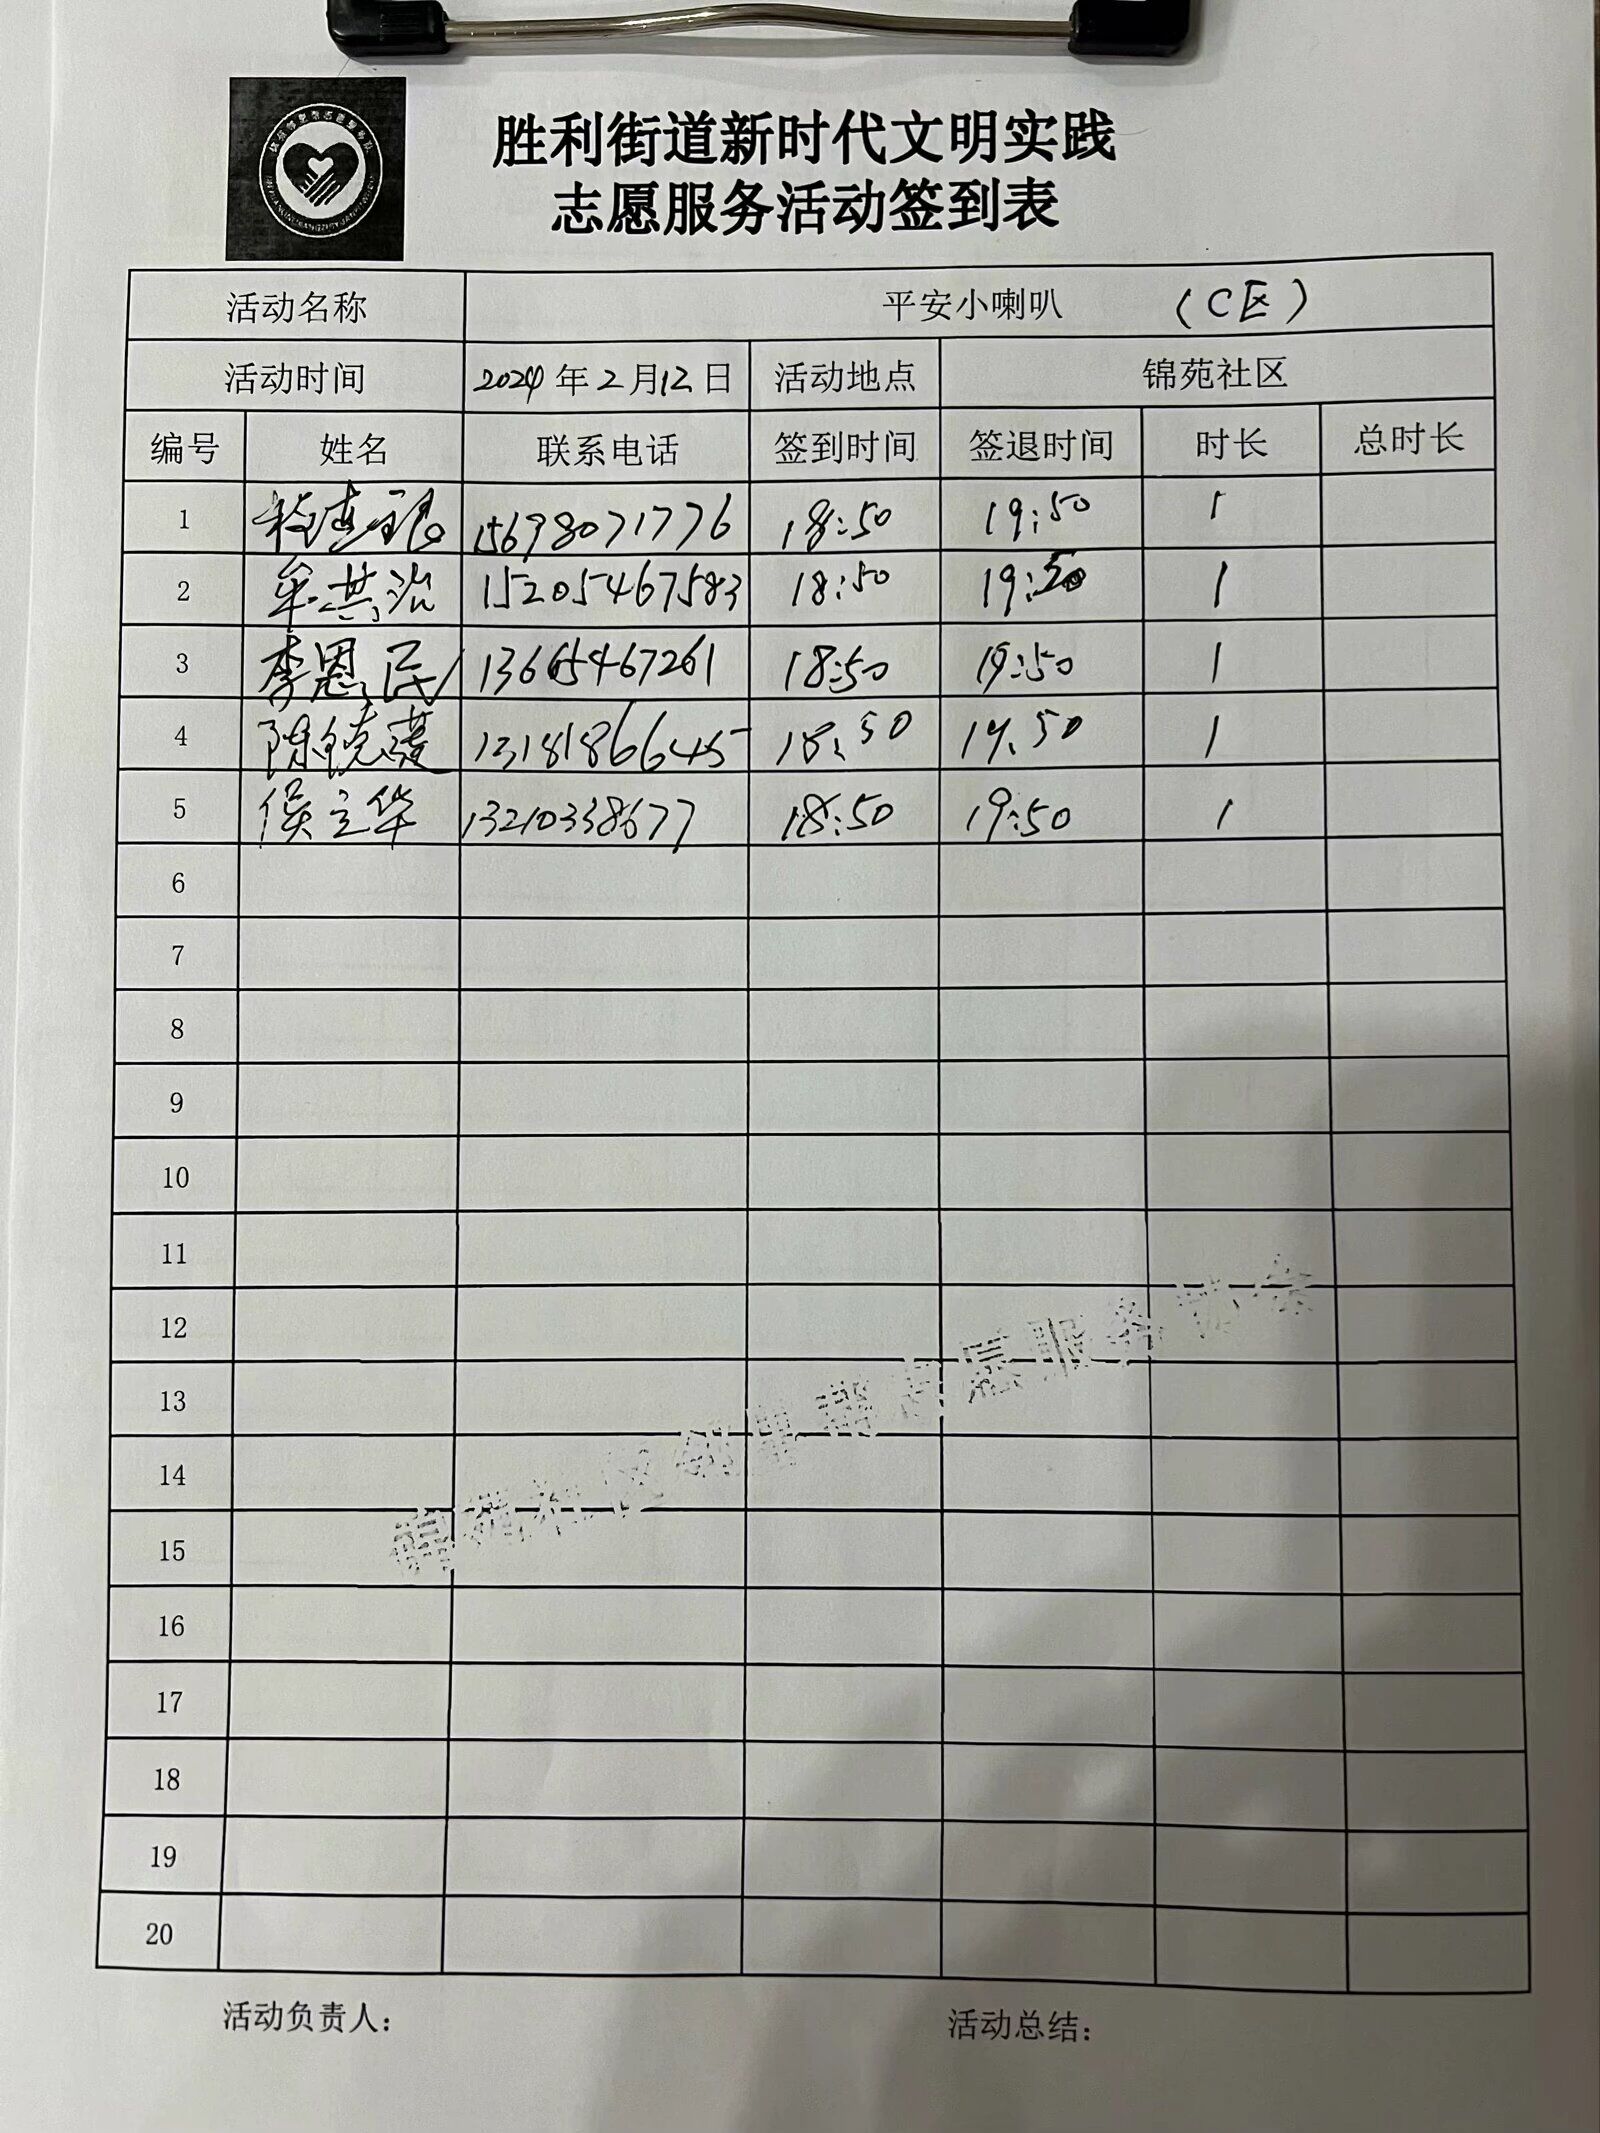 胜利街道新时代文明实践
志愿服务活动签到表
活动名称 平安小喇叭 (C区)
活动时间 2024年2月12日 活动地点 锦苑社区
编号 姓名 联系电话 签到时间 签退时间 时长 总时长
1 15698071776 18:50 19:50 1
2 牟其治 15205467583 18:50 19:50 1
3 李恩民 13665467261 18:50 19:50 1
4 陈 13181866645 18:50 19:50 1
5 侯立华 13210338677 18:50 19:50 1
6
7
8
9
10
11
12
13
14
15
16
17
18
19
20
活动负责人: 活动总结: